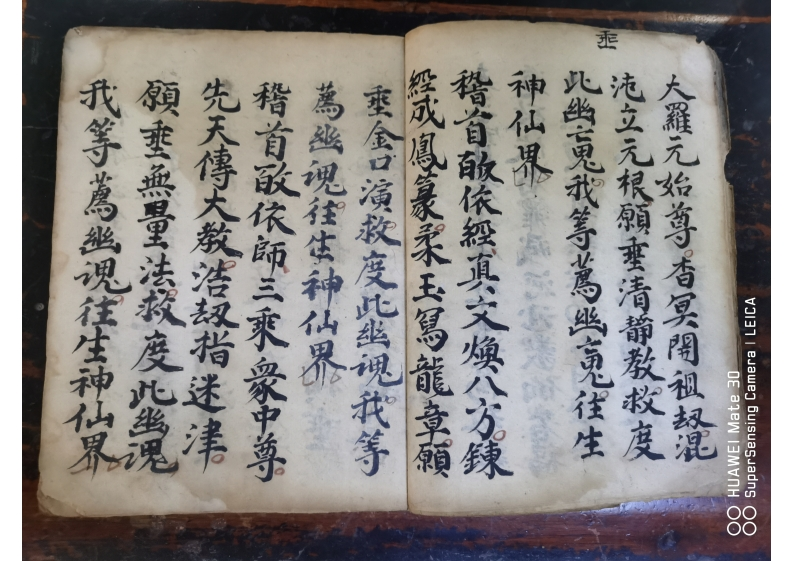 垂
大羅元始尊杳冥開祖刼混
沌立元根願垂清靜教救度
此幽䰟我等薦幽䰟徃生
神仙界
稽首皈依經真文煥八方鍊
經成鳳篆柔玉冩龍章願
垂金口演救度此幽魂我等
薦幽魂徃生神仙界
稽首皈依師三乘衆中尊
先天傳大教浩刼指迷津
願垂無量法救度此幽魂
我等薦幽魂徃生神仙界
HUAWEI Mate 30
SuperSensing Camera | LEICA